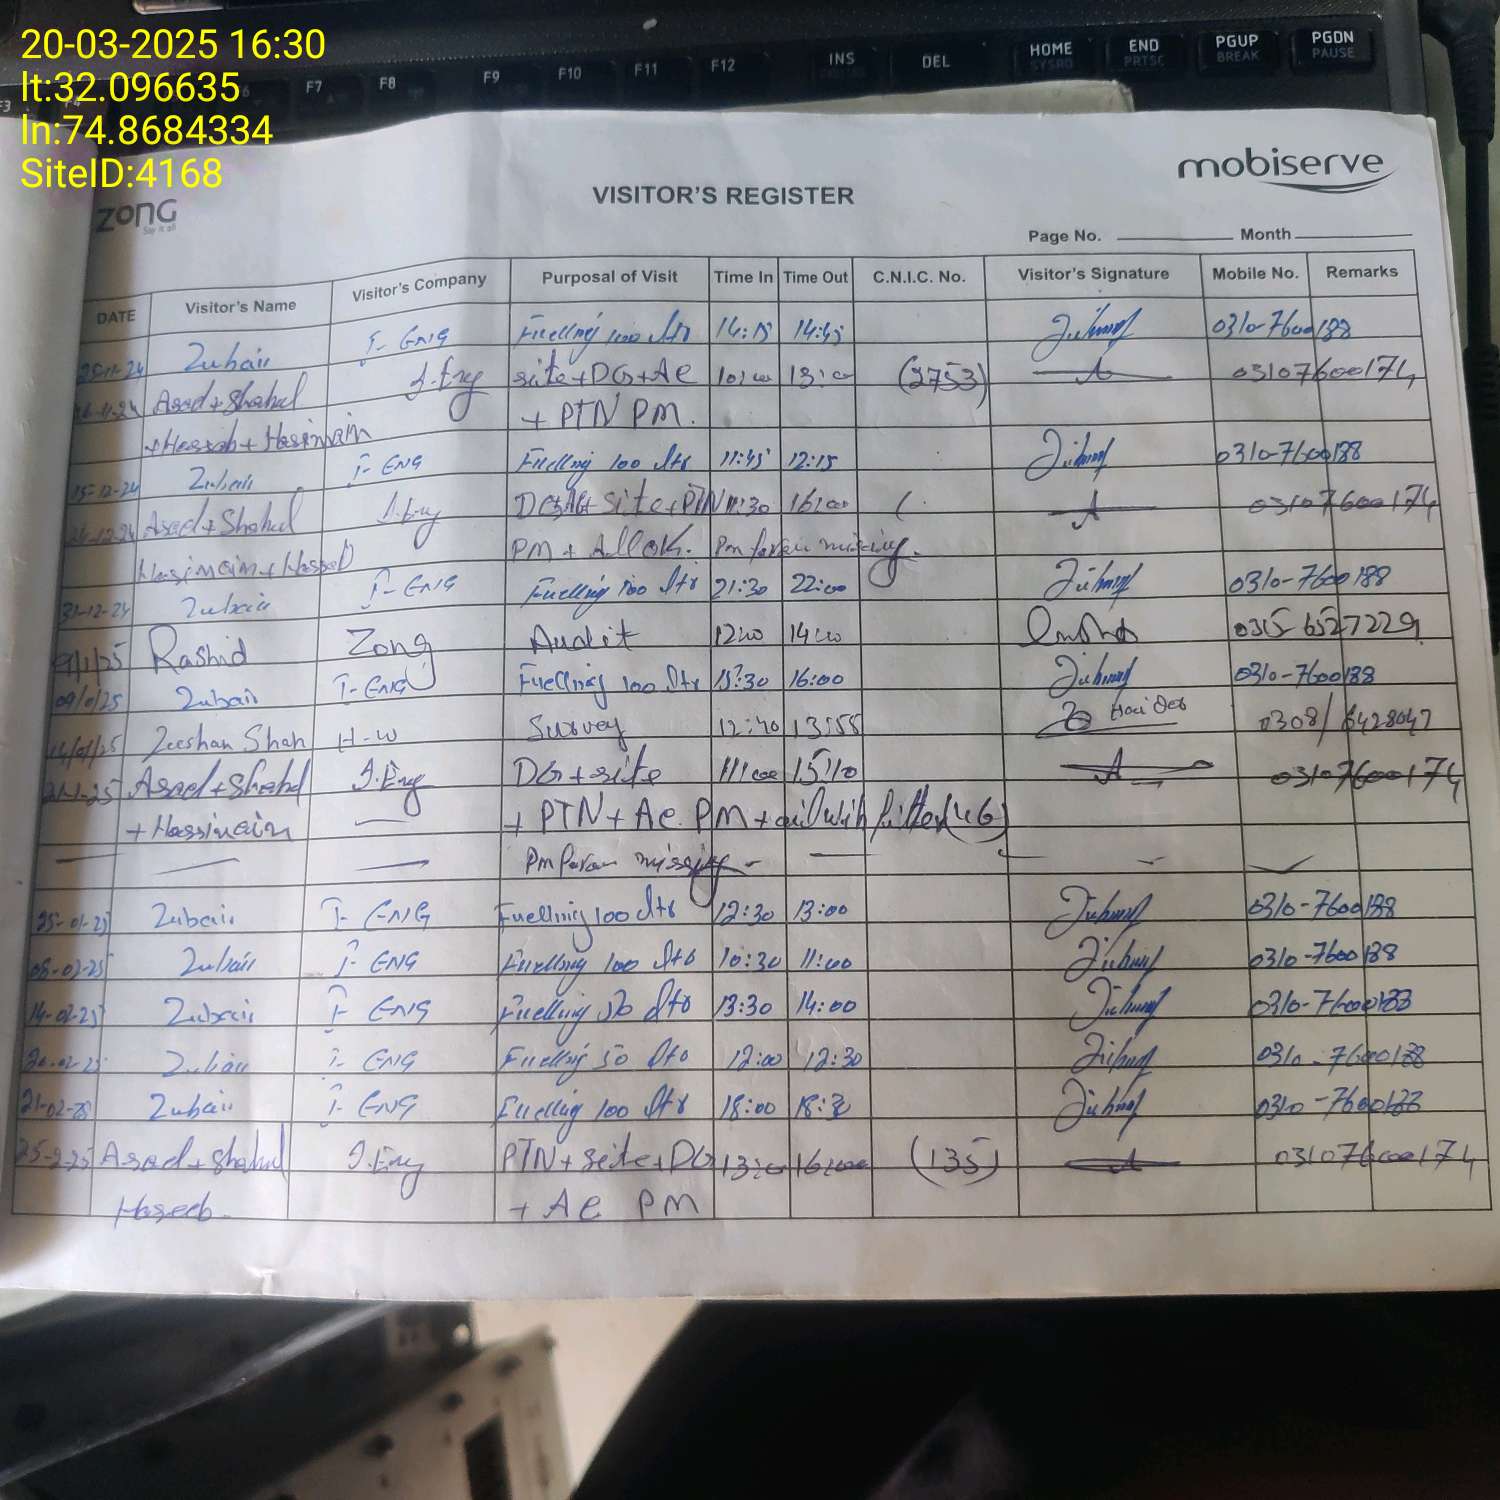 20-03-2025 16:30
lt:32.096635
ln:74.8684334
SiteID:4168
F7 F8 F9 F10 F11 F12 INS DEL HOME END PRTSC PGUP BREAK PGDN PAUSE
mobiserve
zong
Say it all
VISITOR'S REGISTER
Page No. Month
DATE Visitor's Name Visitor's Company Purposal of Visit Time In Time Out C.N.I.C. No. Visitor's Signature Mobile No. Remarks
Zubair I- ENG Fuelling 100 ltr 14:15 14:45 0310-7600188
Asad+Shahid I.Eng site+DG+AC 10:00 13:00 (2753) 03107600174
+ PTN PM.
15-12-24 Zubair I- ENG Fuelling 100 ltr 11:45 12:15 0310-7600188
24-12-24 Asad+Shahid I.Eng site+PTN 11:30 16:00 03107600174
PM + All OK. Pm missing.
31-12-24 Zubair I- ENG Fuelling 100 ltr 21:30 22:00 0310-7600188
9/1/25 Rashid Zong Audit 1200 1400 0315 6527229
09/01/25 Zubair I- ENG Fuelling 100 ltr 15:30 16:00 0310-7600188
Zeeshan Shah H-W Survey 12:40 13:55 Haider 0308/6428047
21-1-25 Asad+Shahid I.Eng DG+site 11:00 15:10 03107600174
+ Hassinain + PTN+AC PM + oil with filter (46)
Pm missing
25-01-25 Zubair I- ENG Fuelling 100 ltr 12:30 13:00 0310-7600188
08-02-25 Zubair I- ENG Fuelling 100 ltr 10:30 11:00 0310-7600188
14-02-25 Zubair I- ENG Fuelling 50 ltr 13:30 14:00 0310-7600188
20-02-25 Zubair I- ENG Fuelling 50 ltr 12:00 12:30 0310-7600188
21-02-25 Zubair I- ENG Fuelling 100 ltr 18:00 18:30 0310-7600188
25-2-25 Asad+Shahid I.Eng PTN+site+DG 13:00 16:00 (135) 03107600174
Haseeb. + AC PM